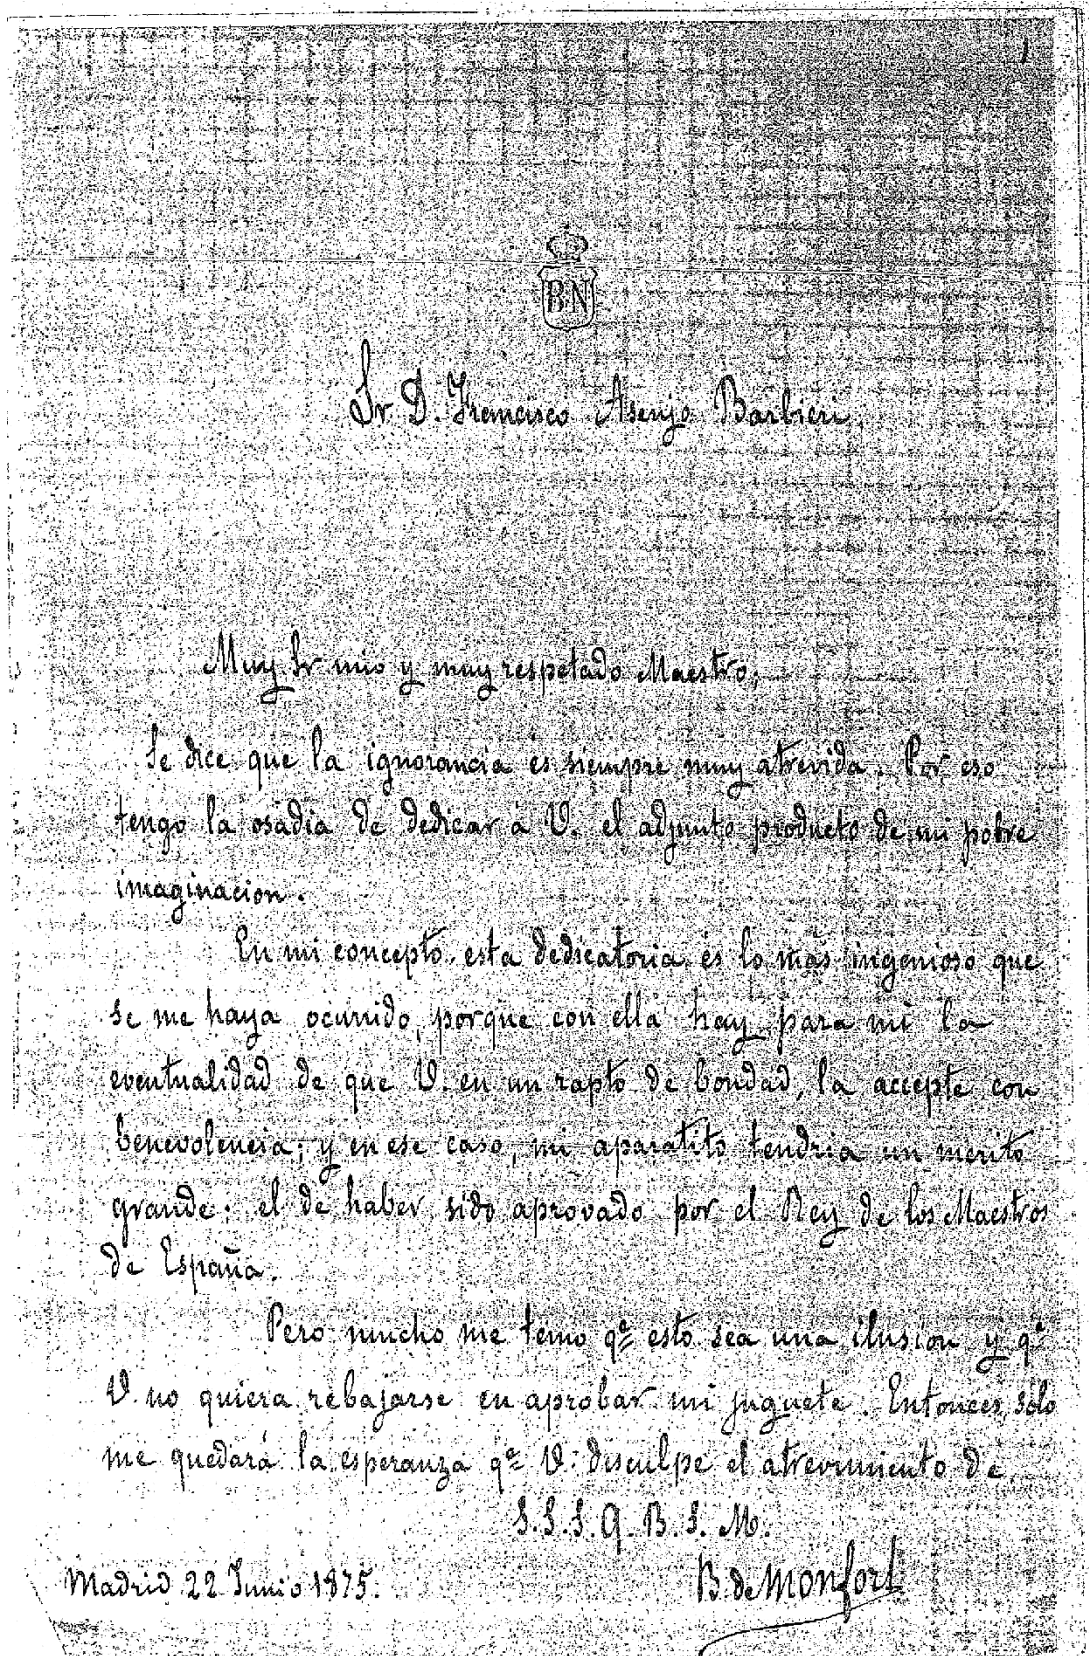 1
BN
Sr D. Francisco Asenjo Barbieri.
Muy Sr mio y muy respetado Maestro;
Se dice que la ignorancia es siempre muy atrevida. Por eso
tengo la osadia de dedicar a V. el adjunto producto de mi pobre
imaginacion.
En mi concepto esta dedicatoria es lo más ingenioso que
se me haya ocurrido, porque con ella hay para mi la
eventualidad de que V. en un rapto de bondad, la accepte con
benevolencia; y en ese caso, mi aparatito tendria un merito
grande: el de haber sido aprovado por el Rey de los Maestros
de España.
Pero mucho me temo qe esto sea una ilusion y qe
V. no quiera rebajarse en aprobar mi juguete. Entonces, sólo
me quedará la esperanza qe V. disculpe el atrevimiento de
S.S.S.Q.B.S.M.
Madrid 22 Junio 1875.
B. de Monfort